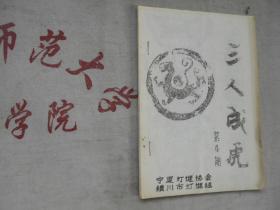 师范大学
学院
三人成虎
第4期
宁夏灯谜协会
银川市灯谜协组